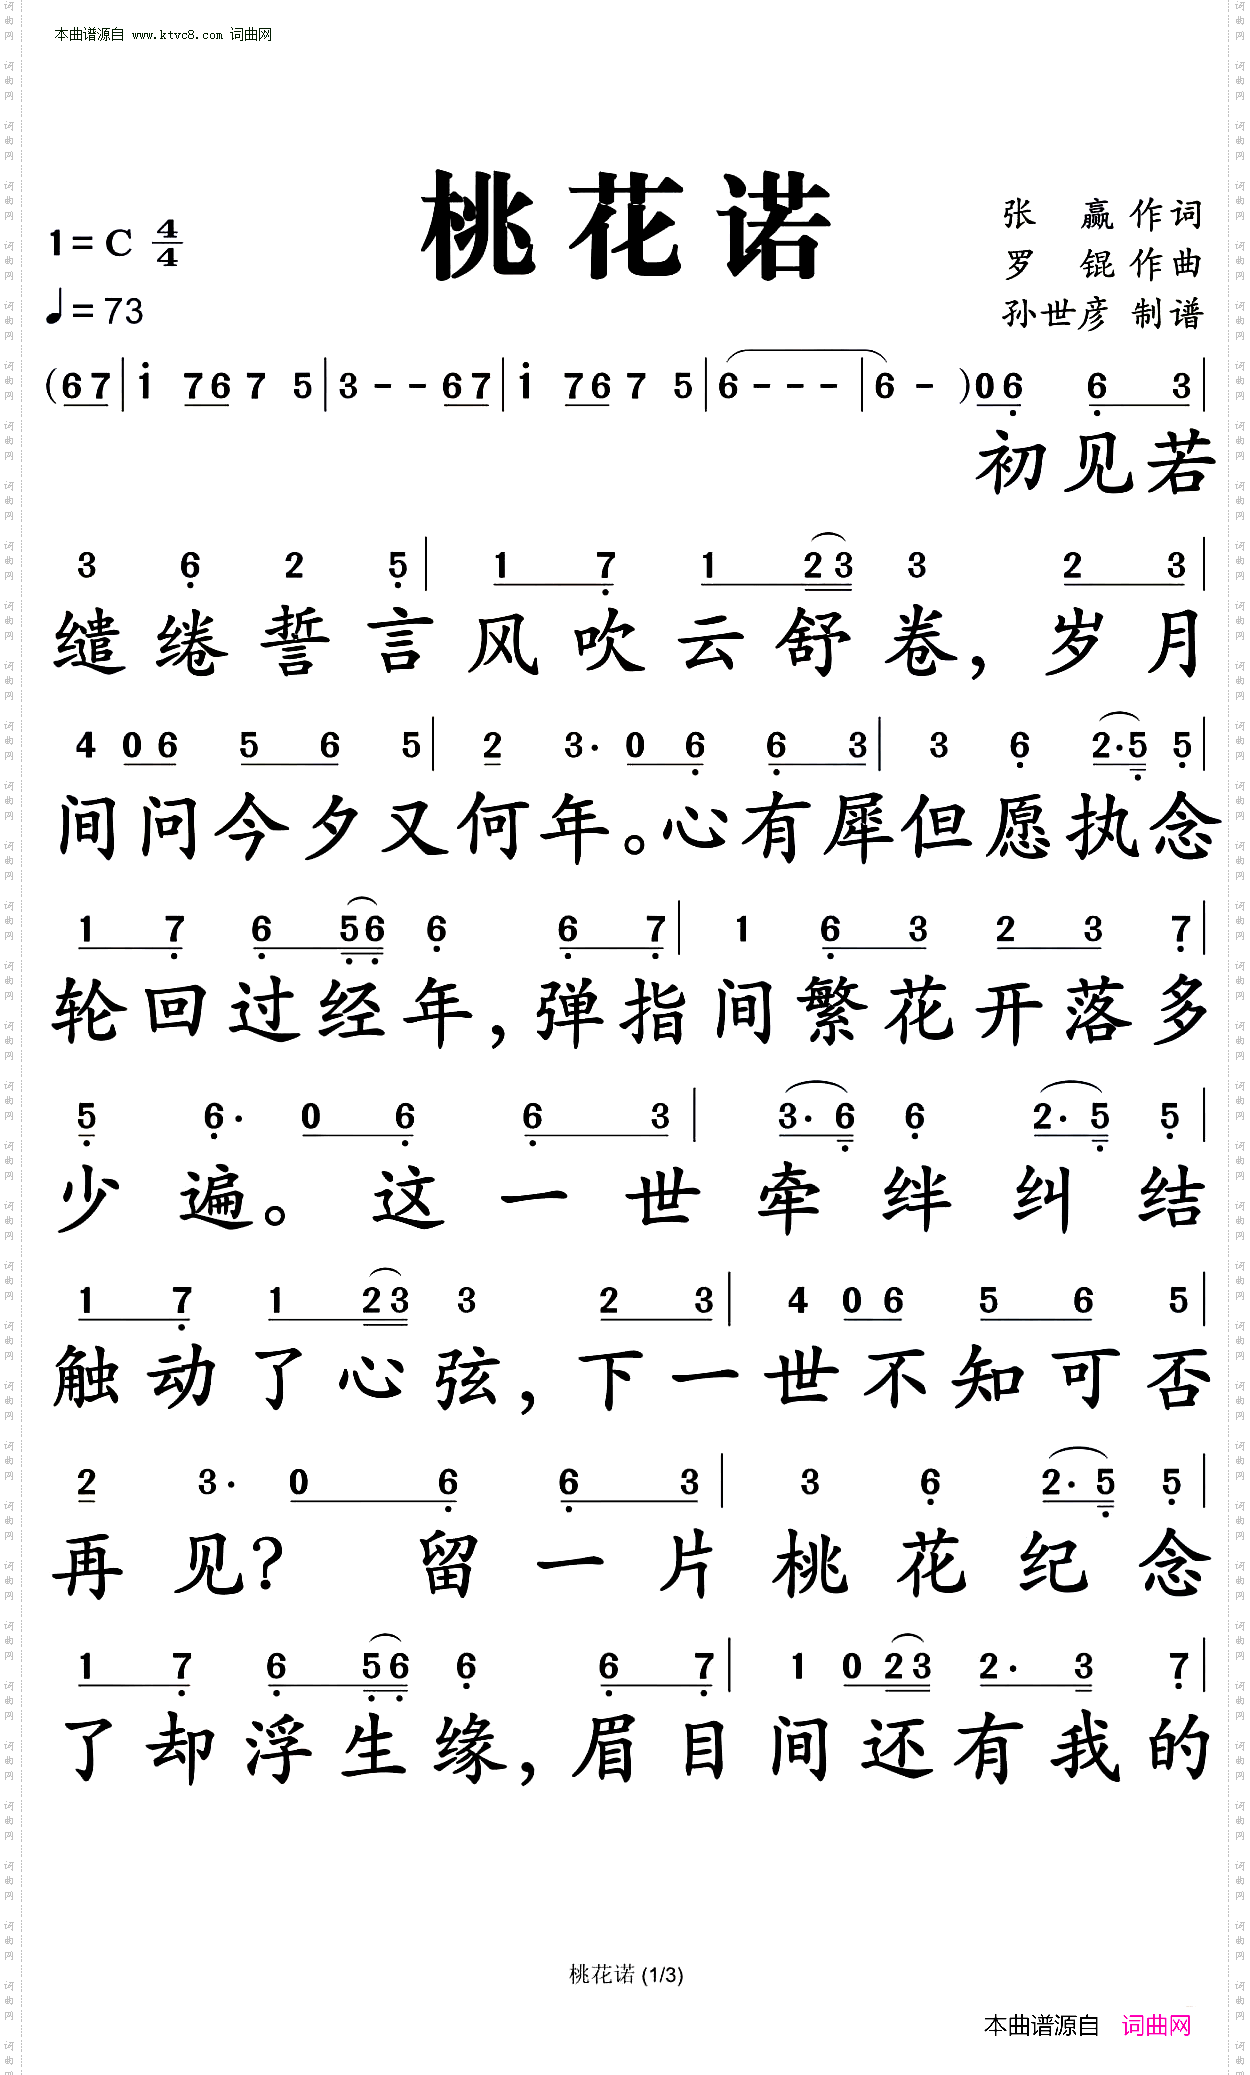 本曲谱源自 www.ktvc8.com 词曲网
桃花诺
1=C 4/4
♩=73
张 赢 作词
罗 锟 作曲
孙世彦 制谱
(67|1 76 7 5|3 - - 67|1 76 7 5|6 - - -|6 - )06 6 3|
初见若
3 6 2 5|1 7 1 23 3 2 3|
缱绻誓言风吹云舒卷,岁月
4 06 5 6 5|2 3· 0 6 6 3|3 6 2·5 5|
间问今夕又何年。心有犀但愿执念
1 7 6 56 6 6 7|1 6 3 2 3 7|
轮回过经年,弹指间繁花开落多
5 6· 0 6 6 3|3· 6 6 2· 5 5|
少遍。这一世牵绊纠结
1 7 1 23 3 2 3|4 06 5 6 5|
触动了心弦,下一世不知可否
2 3· 0 6 6 3|3 6 2· 5 5|
再见?留一片桃花纪念
1 7 6 56 6 6 7|1 023 2· 3 7|
了却浮生缘,眉目间还有我的
桃花诺 (1/3)
本曲谱源自 词曲网